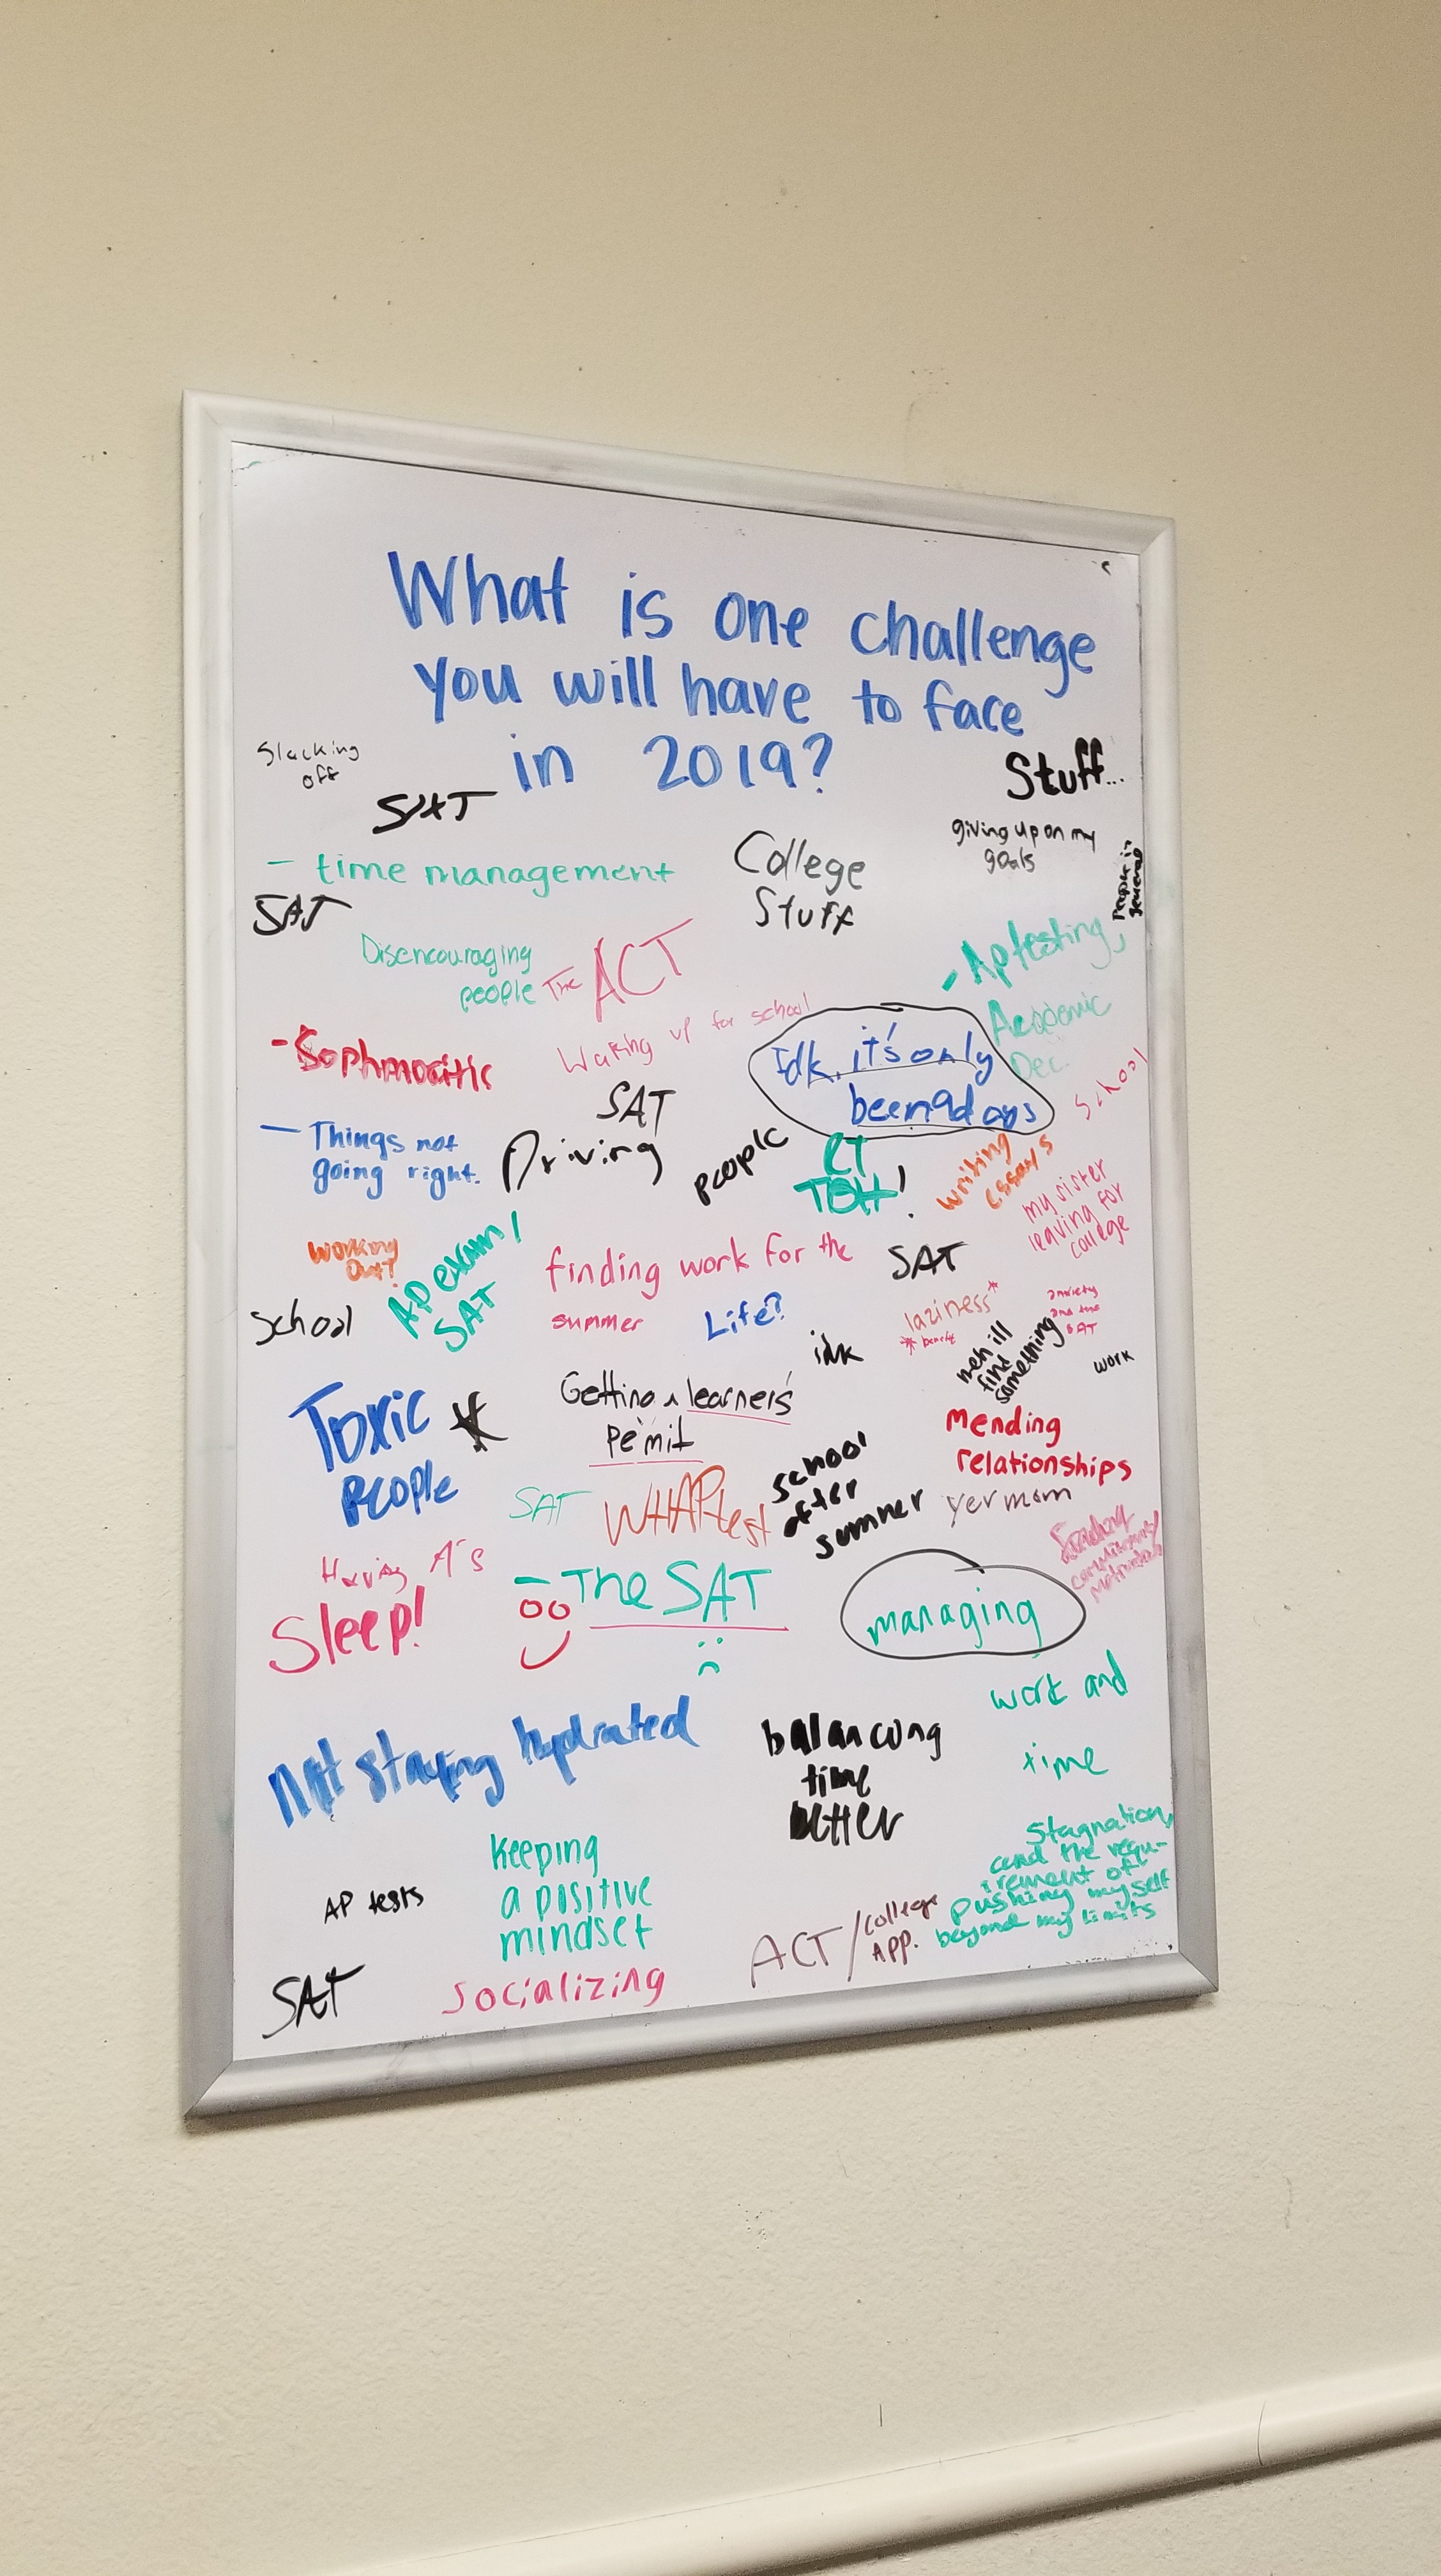 What is one challenge
you will have to face
in 2019?
Slacking
off
SAT
Stuff...
giving up on my
goals
People in
general
- time management
College
Stuff
SAT
Disencouraging
people
The ACT
- AP testing,
Academic
Dec.
- Sophmoritis
Waking up for school
Idk, it's only
been 9 days
School
SAT
- Things not
going right.
Driving
people
!
writing
essays
my sister
leaving for
college
working
out?
AP exam/
SAT
finding work for the
summer
SAT
School
Life?
laziness*
* benefit
anxiety
and the
SAT
idk
meh ill
find
something
work
Toxic
People
Getting a learner's
Permit
mending
relationships
SAT
WHAP test
school
after
summer
yer mom
Having A's
Sleep!
- The SAT
managing
work and
time
Not staying hydrated
balancing
time
better
Stagnation,
and the requ-
irement of
pushing myself
beyond my limits
keeping
a positive
mindset
AP tests
ACT/college
App.
SAT
Socializing